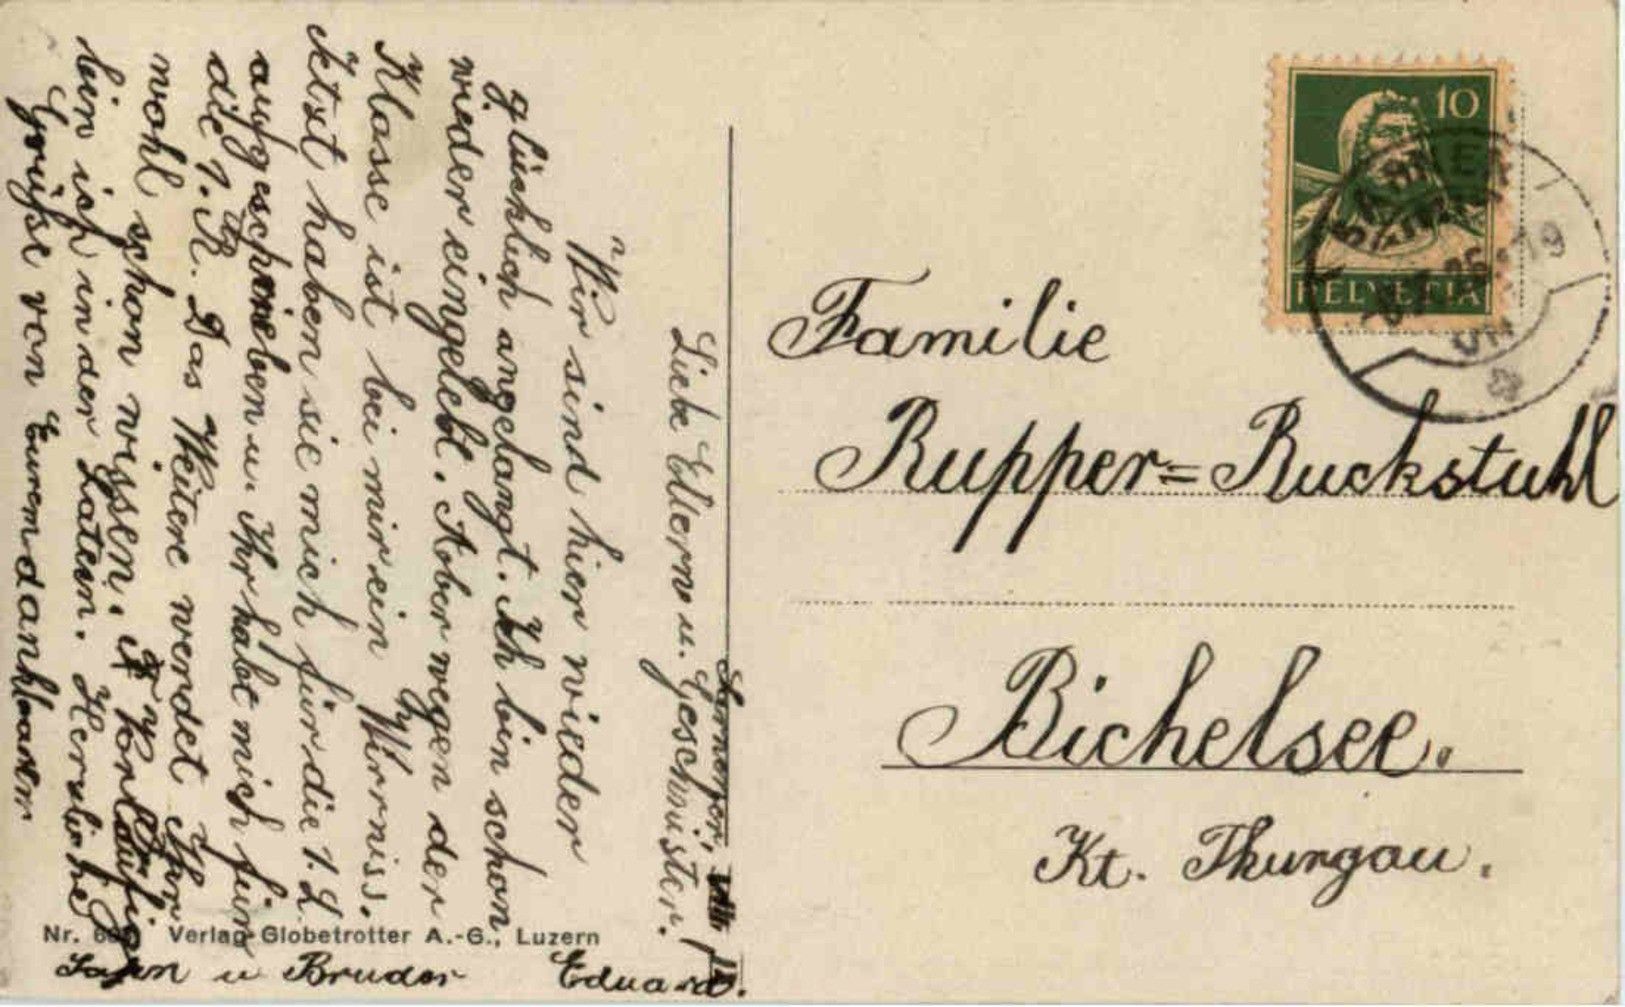 Liebe Eltern u. Geschwister.
Wir sind hier wieder
glücklich angelangt. Ich bin schon
wieder eingelebt. Aber wegen der
Klasse ist bei mir ein Wirrniss.
Jetzt haben sie mich für die 1. L.
aufgeschrieben u. Ihr habt mich für
die 1. R. Das Weitere werdet Ihr
wohl schon wissen. Vorläufig
bin ich in der Latein. Herzliche
Grüße von Eurem dankbaren
Sohn u Bruder Eduard.
Nr. Verlag Globetrotter A.-G., Luzern
10
HELVETIA
Familie
Rupper=Ruckstuhl
Bichelsee.
Kt. Thurgau.